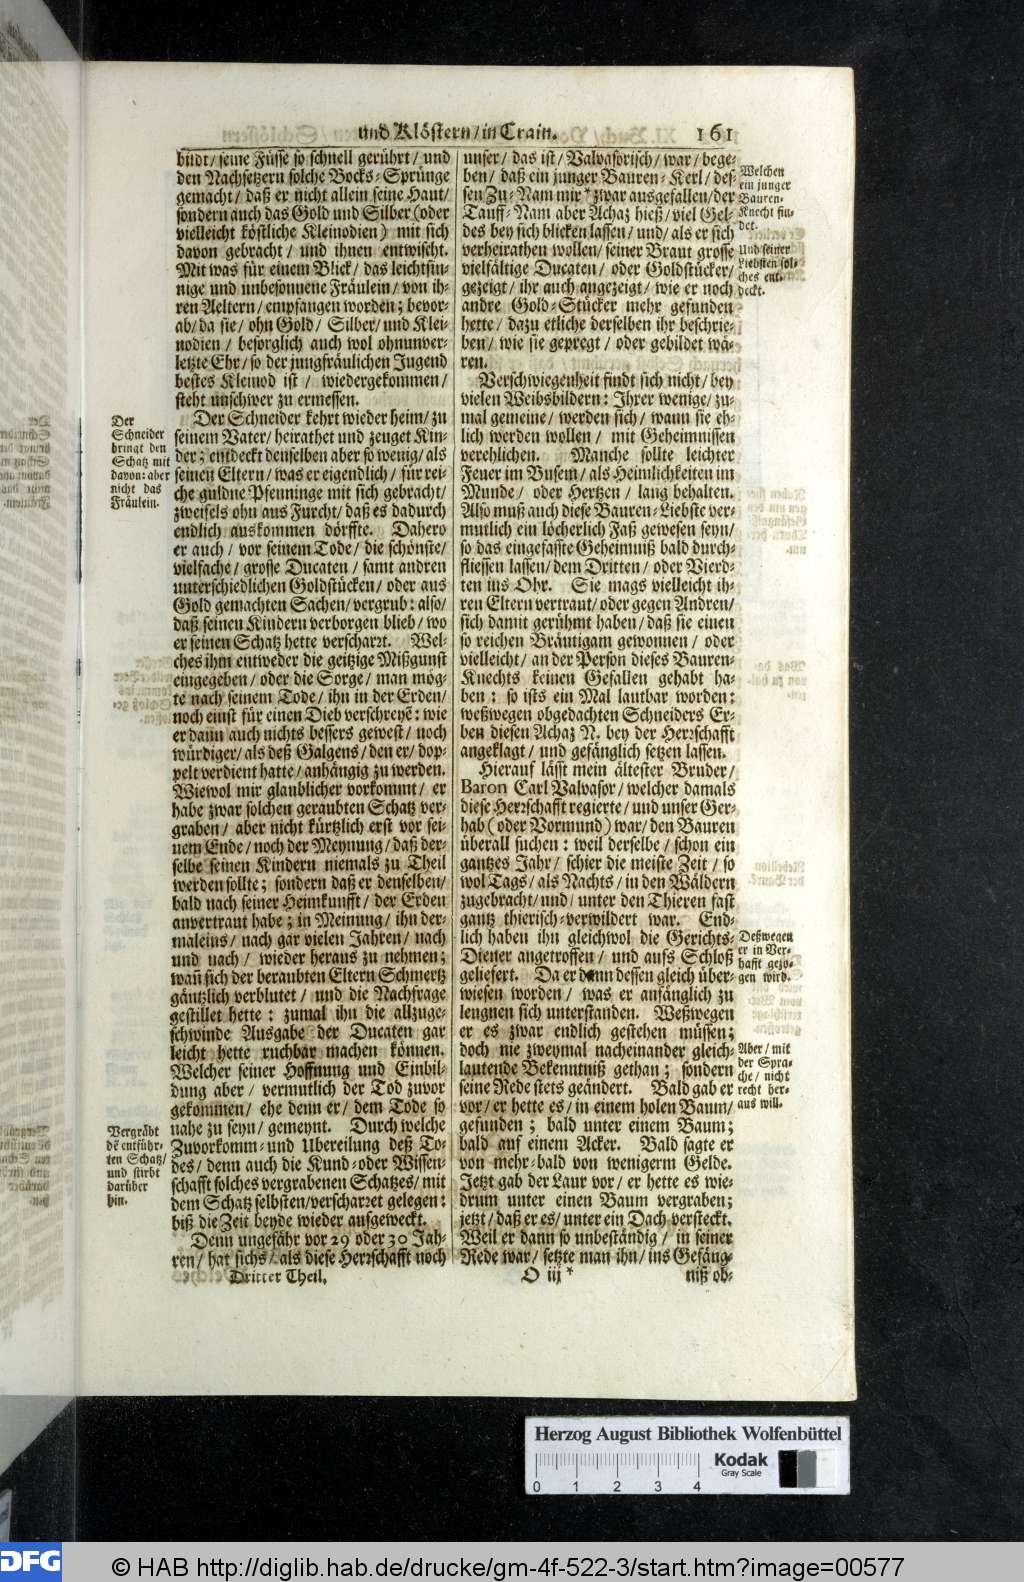 und Klöstern/ in Crain. 161
büdt/ seine Füsse so schnell gerührt/ und
den Nachsetzern solche Bocks-Sprünge
gemacht/ daß er nicht allein seine Haut/
sondern auch das Gold und Silber (oder
vielleicht köstliche Kleinodien) mit sich
davon gebracht/ und ihnen entwischt.
Mit was für einem Blick/ das leichtsin-
nige und unbesonnene Fräulein/ von ih-
ren Aeltern/ empfangen worden; bevor-
ab/ da sie/ ohn Gold/ Silber/ und Klei-
nodien/ besorglich auch wol ohnunver-
letzte Ehr/ so der jungfräulichen Jugend
bestes Kleinod ist/ wiedergekommen/
steht unschwer zu ermessen.
Der Schneider kehrt wieder heim/ zu
seinem Vater/ heirathet und zeuget Kin-
der; entdeckt denselben aber so wenig/ als
seinen Eltern/ was er eigendlich/ für rei-
che guldne Pfenninge mit sich gebracht/
zweifels ohn aus Furcht/ daß es dadurch
endlich auskommen dörffte. Dahero
er auch/ vor seinem Tode/ die schönste/
vielfache/ grosse Ducaten/ samt andren
unterschiedlichen Goldstücken/ oder aus
Gold gemachten Sachen/ vergrub: also/
daß seinen Kindern verborgen blieb/ wo
er seinen Schatz hette verscharrt. Wel-
ches ihm entweder die geitzige Mißgunst
eingegeben/ oder die Sorge/ man mög-
te nach seinem Tode/ ihn in der Erden/
noch einst für einen Dieb verschreyē: wie
er dann auch nichts bessers gewest/ noch
würdiger/ als deß Galgens/ den er/ dop-
pelt verdient hatte/ anhängig zu werden.
Wiewol mir glaublicher vorkommt/ er
habe zwar solchen geraubten Schatz ver-
graben/ aber nicht kürtzlich erst vor sei-
nem Ende/ noch der Meynung/ daß der-
selbe seinen Kindern niemals zu Theil
werden sollte; sondern daß er denselben/
bald nach seiner Heimkunfft/ der Erden
anvertraut habe; in Meinung/ ihn der-
maleins/ nach gar vielen Jahren/ nach
und nach/ wieder heraus zu nehmen;
wañ sich der beraubten Eltern Schmertz
gäntzlich verblutet/ und die Nachfrage
gestillet hette: zumal ihn die allzuge-
schwinde Ausgabe der Ducaten gar
leicht hette ruchbar machen können.
Welcher seiner Hoffnung und Einbil-
dung aber/ vermutlich der Tod zuvor
gekommen/ ehe denn er/ dem Tode so
nahe zu seyn/ gemeynt. Durch welche
Zuvorkomm- und Ubereilung deß To-
des/ denn auch die Kund- oder Wissen-
schafft solches vergrabenen Schatzes/ mit
dem Schatz selbsten/ verscharret gelegen:
biß die Zeit beyde wieder aufgeweckt.
Denn ungefähr vor 29 oder 30 Jah-
ren/ hat sichs/ als diese Herrschafft noch
Dritter Theil.
Der
Schneider
bringt den
Schatz mit
davon: aber
nicht das
Fräulein.
Vergräbt
dē entführ-
ten Schatz/
und stirbt
darüber
hin.
unser/ das ist/ Valvasorisch/ war/ bege-
ben/ daß ein junger Bauren-Kerl/ des-
sen Zu-Nam mir * zwar ausgefallen/ der
Tauff-Nam aber Achaz hieß/ viel Gel-
des bey sich blicken lassen/ und/ als er sich
verheirathen wollen/ seiner Braut grosse
vielfältige Ducaten/ oder Goldstücker/
gezeigt/ ihr auch angezeigt/ wie er noch
andre Gold-Stücker mehr gefunden
hette/ dazu etliche derselben ihr beschrie-
ben/ wie sie gepregt/ oder gebildet wä-
ren.
Verschwiegenheit findt sich nicht/ bey
vielen Weibsbildern: Ihrer wenige/ zu-
mal gemeine/ werden sich/ wann sie eh-
lich werden wollen/ mit Geheimnissen
verehlichen. Manche sollte leichter
Feuer im Busem/ als Heimlichkeiten im
Munde/ oder Hertzen/ lang behalten.
Also muß auch diese Bauren-Liebste ver-
mutlich ein löcherlich Faß gewesen seyn/
so das eingefasste Geheimniß bald durch-
fliessen lassen/ dem Dritten/ oder Vierd-
ten ins Ohr. Sie mags vielleicht ih-
ren Eltern vertraut/ oder gegen Andren/
sich damit gerühmt haben/ daß sie einen
so reichen Bräutigam gewonnen/ oder
vielleicht/ an der Person dieses Bauren-
Knechts keinen Gefallen gehabt ha-
ben: so ists ein Mal lautbar worden:
weßwegen obgedachten Schneiders Er-
ben diesen Achaz N. bey der Herrschafft
angeklagt/ und gefänglich setzen lassen.
Hierauf lässt mein ältester Bruder/
Baron Carl Valvasor/ welcher damals
diese Herrschafft regierte/ und unser Ger-
hab (oder Vormund) war/ den Bauren
überall suchen: weil derselbe/ schon ein
gantzes Jahr/ schier die meiste Zeit/ so
wol Tags/ als Nachts/ in den Wäldern
zugebracht/ und/ unter den Thieren fast
gantz thierisch-verwildert war. End-
lich haben ihn gleichwol die Gerichts-
Diener angetroffen/ und aufs Schloß
geliefert. Da er denn dessen gleich über-
wiesen worden/ was er anfänglich zu
leugnen sich unterstanden. Weßwegen
er es zwar endlich gestehen müssen;
doch nie zweymal nacheinander gleich-
lautende Bekenntniß gethan; sondern
seine Rede stets geändert. Bald gab er
vor/ er hette es/ in einem holen Baum/
gefunden; bald unter einem Baum;
bald auf einem Acker. Bald sagte er
von mehr- bald von wenigerm Gelde.
Jetzt gab der Laur vor/ er hette es wie-
drum unter einen Baum vergraben;
jetzt/ daß er es/ unter ein Dach versteckt.
Weil er dann so unbeständig/ in seiner
Rede war/ setzte man ihn/ ins Gefäng-
O iij * niß ob-
Welchen
ein junger
Bauren-
Knecht fin-
det.
Und seiner
Liebsten sol-
ches ent-
deckt.
Deßwegen
er in Ver-
hafft gezo-
gen wird.
Aber/ mit
der Spra-
che/ nicht
recht her-
aus will.
Herzog August Bibliothek Wolfenbüttel
Kodak
Gray Scale
0 1 2 3 4
DFG
© HAB http://diglib.hab.de/drucke/gm-4f-522-3/start.htm?image=00577